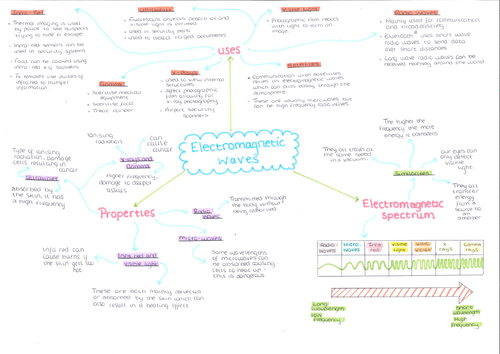 Infra-Red
Thermal imaging is used
by police to see suspects
trying to hide or escape
Infra-red sensors can be
used in security systems
Food can be cooked using
infra-red e.g. toasters
TV remotes use pulses of
infra-red to transmit
information
Ultraviolet
Fluorescent
visible light is emitted
Used in security pens
Used to detect forged documents
Visible light
Photographic film reacts
with light to form an
image
Radio waves
Mainly used for communication
and broadcasting
Bluetooth® uses short wave
radio waves to send data
over short distances
Long wave radio waves can be
received halfway around the world
uses
X-Rays
Used to view internal
structures
Affect photographic
film allowing for
x-ray photography
Airport security
scanners
Gamma
Sterilise medical
equipment
Sterilise food
Treat cancer
Microwaves
Communication with satellites
relies on electromagnetic waves
which can pass easily through the
atmosphere
These are usually microwaves but
can be high frequency radio waves
Electromagnetic
waves
Ionising
radiation
can
cause
cancer
X-rays and
Gamma
Higher frequency,
damage to deeper
tissues
Type of ionising
radiation, damage
cells resulting in
cancer
Ultraviolet
Absorbed by
the skin, it has
a high frequency
Properties
Radio
waves
Transmitted through
the body without
being absorbed
Micro-waves
Some wavelengths
of microwaves can
be absorbed causing
cells to heat up -
this is dangerous
Infra red and
visible light
Infra red can
cause burns if
the skin gets too
hot
These are both mainly reflected
or absorbed by the skin which can
also result in a heating effect.
The higher the
frequency the more
energy it transfers
They all travel at
the same speed
in a vacuum.
our eyes can
only detect
visible
light
Similarities
They all
transfer
energy
from a
source to
an
absorber
Electromagnetic
spectrum
Radio
waves
Micro
waves
Infra
red
Visible
light
Ultra
violet
X
rays
Gamma
rays
Long
wavelength
Low
frequency
Short
wavelength
High
frequency